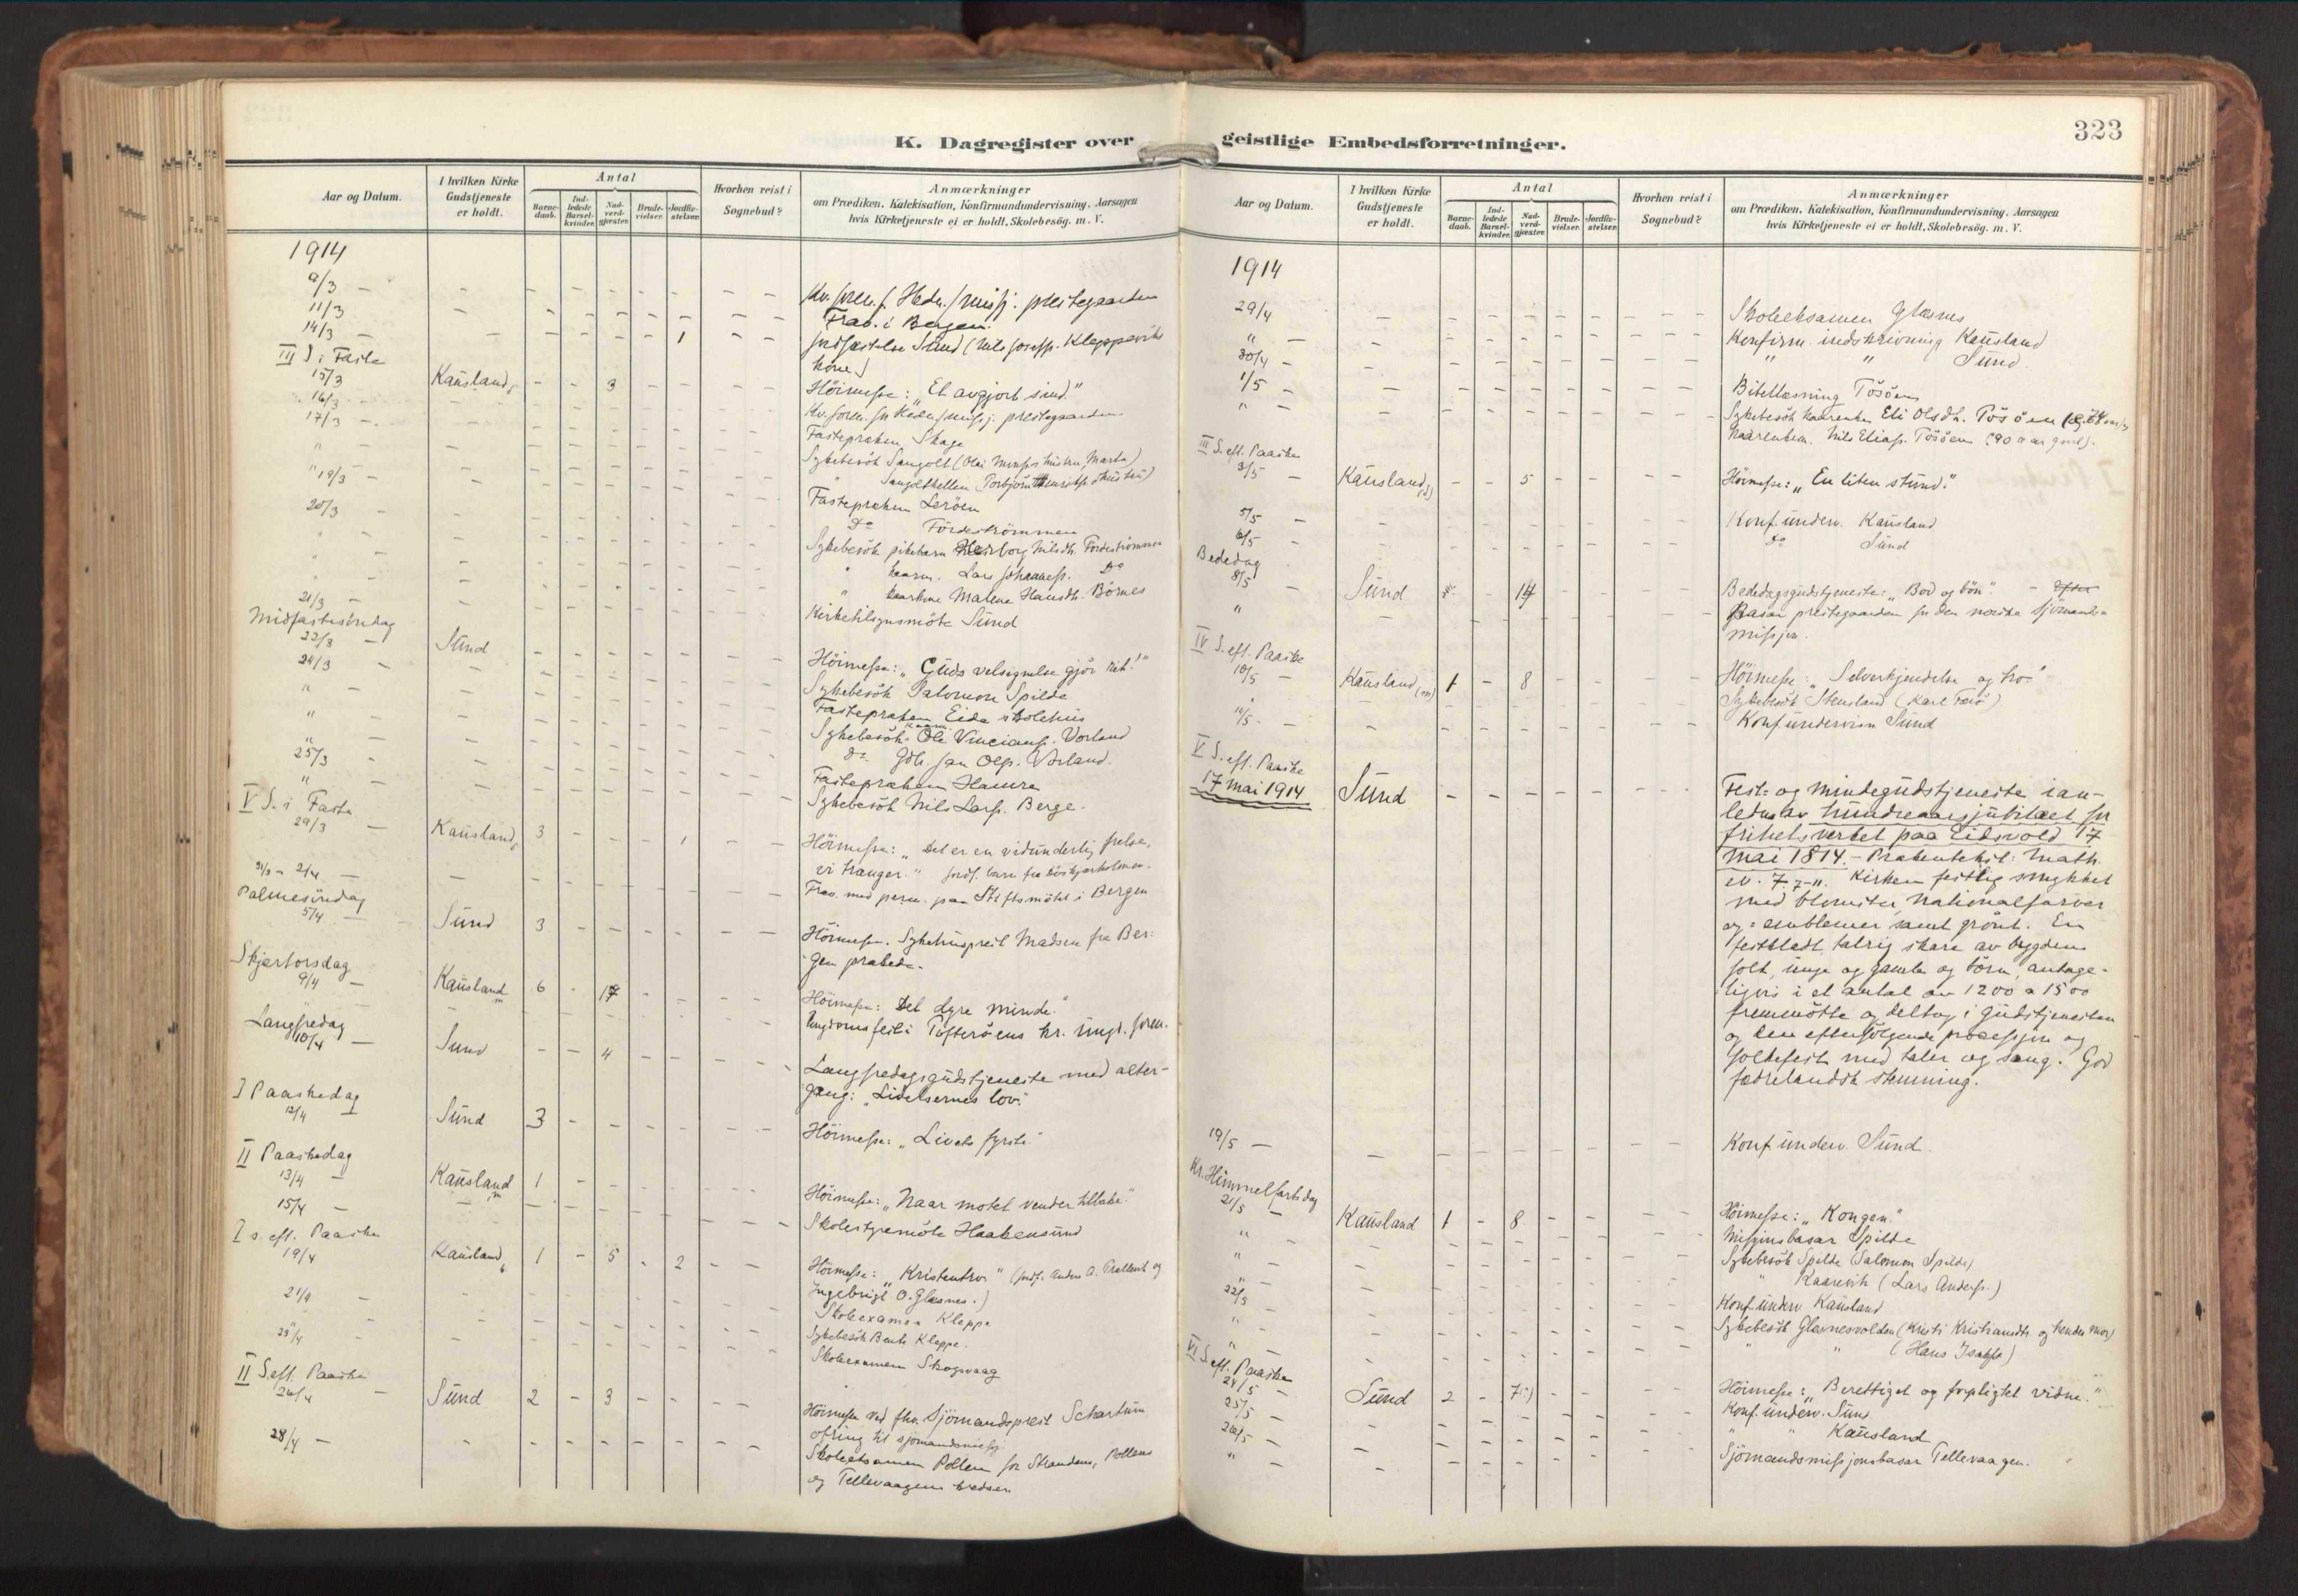 323
K. Dagregister over geistlige Embedsforretninger.
Aar og Datum.
I hvilken Kirke Gudstjeneste er holdt.
Antal
Barne-daab.
Ind-ledede Barsel-kvinder.
Nad-verd-gjæster.
Brude-vielser.
Jordfæ-stelser.
Hvorhen reist i Sognebud?
Anmærkninger
om Prædiken, Katekisation, Konfirmandundervisning. Aarsagen
hvis Kirketjeneste ei er holdt. Skolebesög. m. V.
1914
9/3 - Kv. foren. f. Hedn. missj. prestegaarden
11/3 Frav. i Bergen.
14/3 - 1 Jordfæstelse Sund (Nils Josefs. Kleppeviks
kone)
III S. i Faste
15/3 Kausland - - 3 Höimesse: "Et avgjort sind"
16/3 Kv. foren. for Hedn. missj. prestegaarden
17/3 -. Fastepræken Skage
" Sykebesök Sangolt (Olai Monss hustru, Marta)
" Sangoltkellen
19/3 - Fastepræken Leröen
20/3 Do Fördeströmmen
Sykebesök pikebarn Herborg Nilsdtr. Fördeströmmen
" kaarm. Lars Johanness. Do
" kaarkone Malene Hansdtr. Börnes
21/3 - Kirketilsynsmöte Sund
Midfastesöndag
22/3 - Sund Höimesse: "Guds velsignelse gjör rik!"
24/3 Sykebesök Salomon Spilde
" Fastepræken Eide skolehus
" Sykebesök kaarm. Ole Vincents. Vorland
" Do. Joh. Jan Ols. Vorland.
25/3 Fastepræken Hamre
" Sykebesök Nils Larss. Berge.
V S. i Faste
29/3 - Kausland 3 - - - 1 Höimesse: "Det er en vidunderlig frelse,
vi trænger."
31/3 - 2/4 - Frav. med perm. paa Stiftsmötet i Bergen
Palmesöndag
5/4 - Sund 3 Höimesse. Sykehusprest Madsen fra Ber-
gen prækede.
Skjærtorsdag
9/4 - Kausland m 6 - 17 Höimesse: Det dyre minde."
Ungdomsfest i Tofteröens kr. ungd. foren.
Langfredag
10/4 - Sund - - 4 Langfredagsgudstjeneste med alter-
gang: "Lidelsernes lov."
I Paaskedag
12/4 - Sund 3 Höimesse: "Livets fyrste."
II Paaskedag
13/4 - Kausland m 1 Höimesse: "Naar motet vender tilbake."
15/4 - Skolestyremöte Haakensund
I s. eft. Paaske
19/4 Kausland 1 - 5 - 2 Höimesse: "Kristentro" (Jordf. Anders A. Trellevik og
Ingebrigt O. Glesnes.)
21/4 - Skoleexamen Kleppe
" Sykebesök Berte Kleppe.
23/4 - Skoleexamen Skogsvaag
II S. eft. Paaske
26/4 - Sund 2 - 3 Höimesse ved fhv. Sjömandsprest Schartum
ofring til sjömandsmissj.
28/4 - Skoleeksamen Pollen for Strandens, Pollens
og Tellevaagens kredser.
1914
29/4 Skoleeksamen Glesnes
" - Konfirm. indskrivning Kausland
30/4 - " " Sund.
1/5 - Bibellæsning Tösöen
" - Sykebesök kaarenken Eli Olsdtr. Tösöen
kaarenkem. Nils Eliass. Tösöen (90 aar gml).
III S. eft. Paaske
3/5 - Kausland - - 5 Höimesse: "En liten stund."
5/5 - Konf. underv. Kausland
6/5 - Do Sund
Bededag
8/5 - Sund - 14 Bededagsgudstjeneste: "Bod og bön".
" Basar prestegaarden for den norske sjömands-
missjon.
IV S. eft. Paaske
10/5 - Kausland (m) 1 - 8 Höimesse: "Selverkjendelse og tro."
" Sykebesök Stensland
12/5 - Konf. undervisn. Sund
V S. eft. Paaske
17 Mai 1914 Sund Fest- og mindegudstjeneste i an-
ledn. av hundreaarsjubilæet for
frihetsverket paa Eidsvold 17
Mai 1814. - Præketekst: Math.
ev. 7 7-11. Kirken festlig smykket
med blomster, nationalfarver
og = emblemer samt grönt. En
festkledt, talrig skare av bygdens
folk, unge og gamle og börn, antage-
ligvis i et antal av 1200 a 1500
fremmötte og deltog i gudstjenesten
og den efterfölgende procession og
folkefest med taler og sang. God
fædrelandsk stemning.
19/5 - Konf. underv. Sund.
Kr. Himmelfartsdag
21/5 - Kausland 1 - 8 Höimesse: "Kongen."
" Missionsbasar Spilde
" Sykebesök Spilde (Salomon Spilde)
" " Kaarevik (Lars Anders.)
22/5 - Konf. underv. Kausland
" - Sykebesök Glesnesvolden (Kristi Kristiansdtr. og hendes mor)
" - " " (Hans Isaks.)
VI S. eft. Paaske
24/5 - Sund 2 - 7 Höimesse: "Berettiget og forpligtet vidne."
25/5 - Konf. underv. Sund
26/5 - " " Kausland
" - Sjömandsmissjonsbasar Tellevaagen.